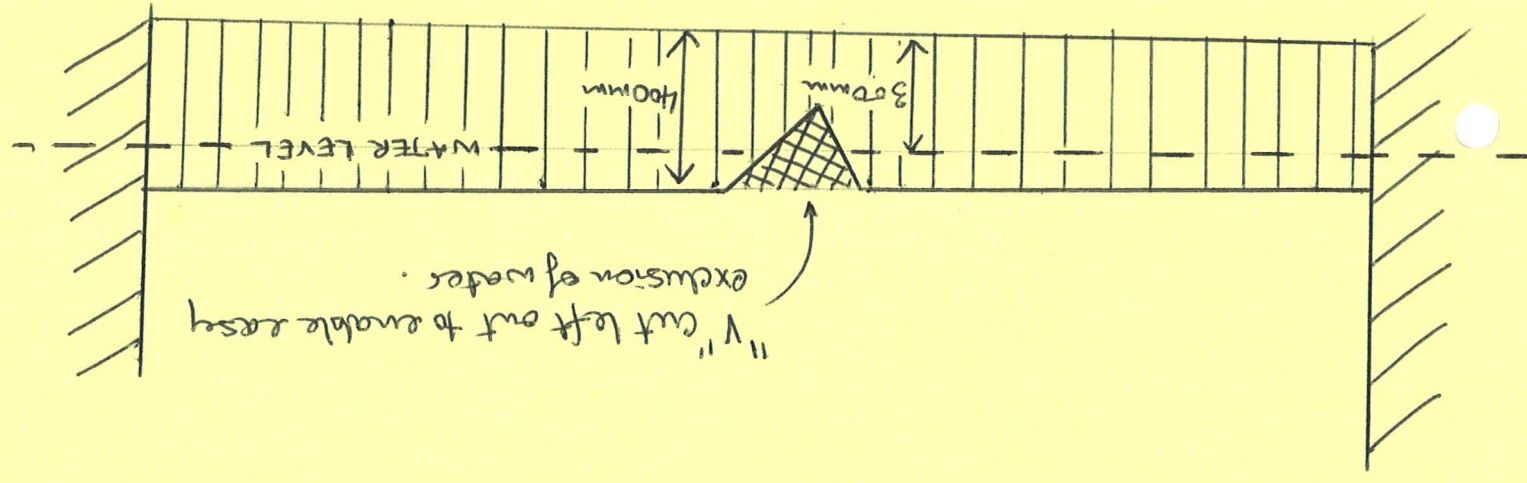 "V" cut left out to enable easy
exclusion of water.
WATER LEVEL
300mm
400mm